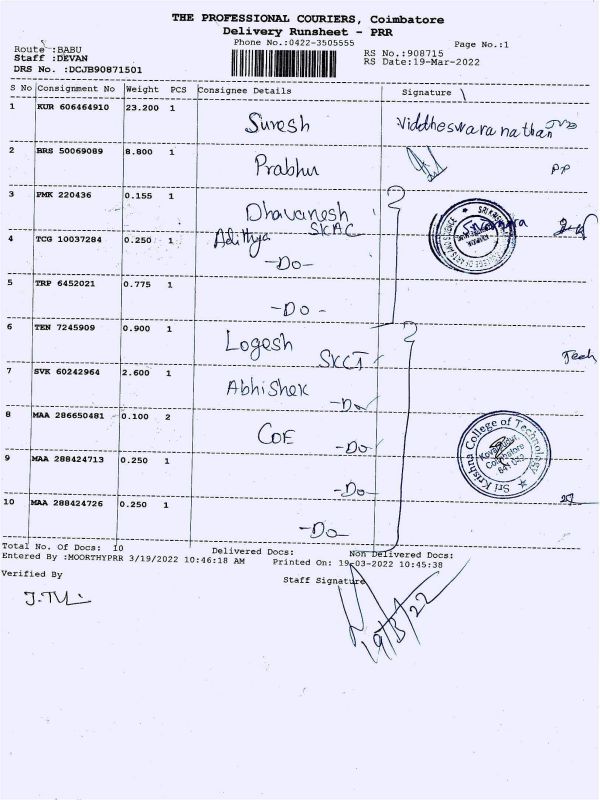 THE PROFESSIONAL COURIERS, Coimbatore
Delivery Runsheet - PRR
Phone No.:0422-3505555
Page No.:1
Route :BABU
Staff :DEVAN
DRS No. :DCJB90871501
RS No.:908715
RS Date:19-Mar-2022
S No Consignment No Weight PCS Consignee Details Signature
1 KUR 606464910 23.200 1 Suresh Viddheswaranathan
2 BRS 50069089 8.800 1 Prabhu PP
3 PMK 220436 0.155 1 Dhavanesh
SKAC
4 TCG 10037284 0.250 1 Adithya
-Do-
5 TRP 6452021 0.775 1
-Do-
6 TEN 7245909 0.900 1 Logesh
SKCT Tech
7 SVK 60242964 2.600 1 Abhishek
-Do-
8 MAA 286650481 0.100 2 COE
-Do-
Sri Krishna College of Technology
Kovaipudur,
Coimbatore
641 042
9 MAA 288424713 0.250 1
-Do-
10 MAA 288424726 0.250 1
-Do-
Total No. Of Docs: 10 Delivered Docs: Non Delivered Docs:
Entered By :MOORTHYPRR 3/19/2022 10:46:18 AM Printed On: 19-03-2022 10:45:38
Verified By Staff Signature
19/3/22